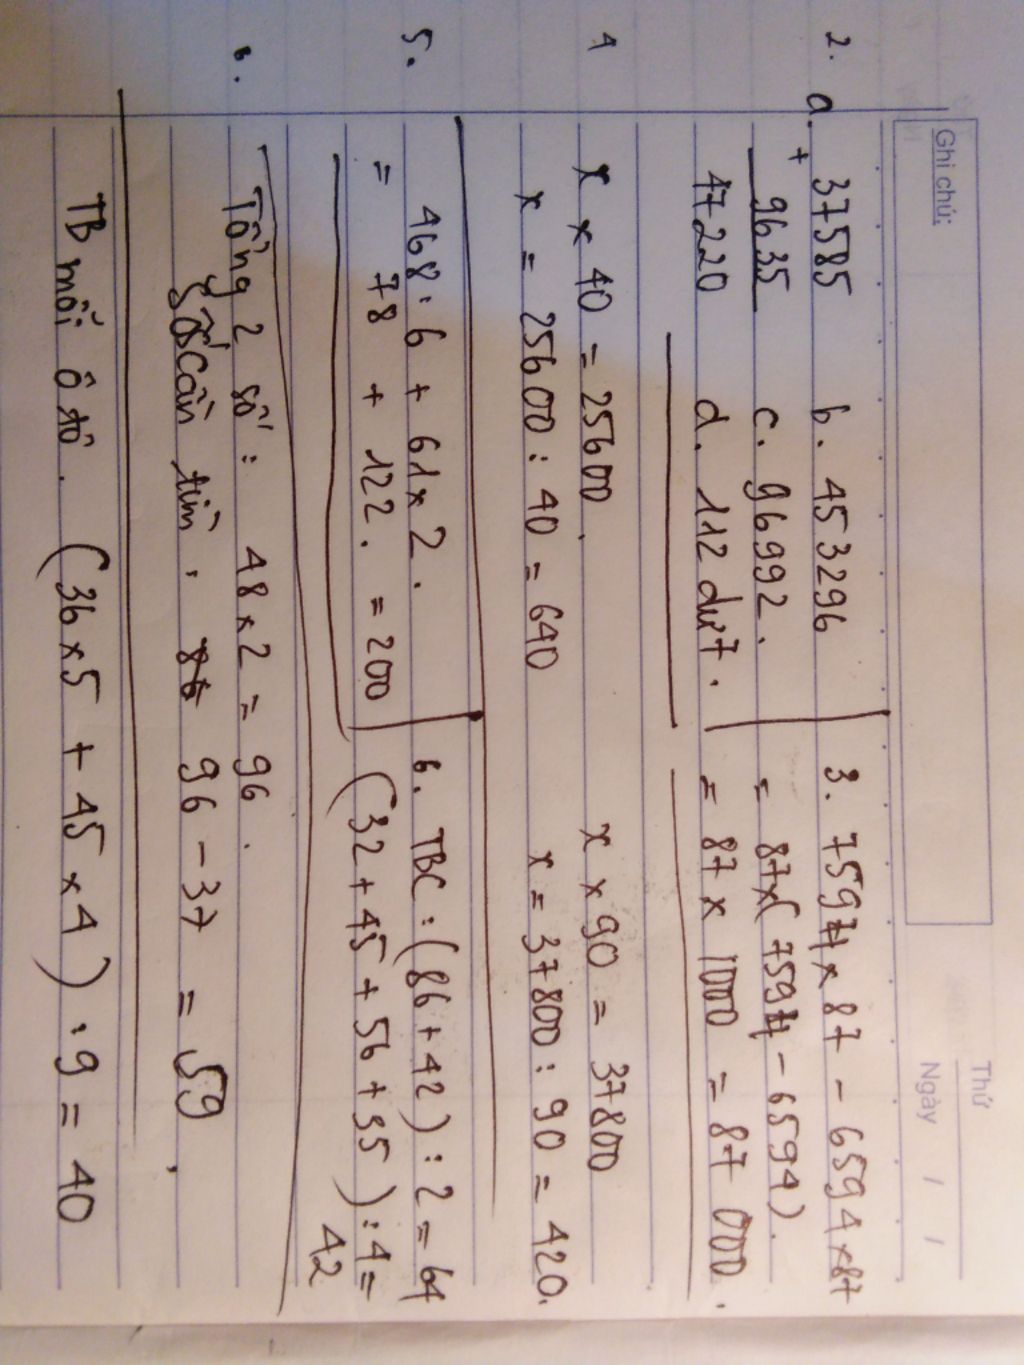 Thứ
Ngày / /
Ghi chú:
2. a. + 37585 b. 453296
9635 c. 96992.
47220 d. 112 dư 7.
3. 7594 x 87 - 6594 x 87
= 87 x (7594 - 6594).
= 87 x 1000 = 87 000.
4 x x 40 = 25600. x x 90 = 37800
x = 25600 : 40 = 640 x = 37800 : 90 = 420.
5. 468 : 6 + 61 x 2.
= 78 + 122. = 200
6. TBC : (86 + 42) : 2 = 64
(32 + 45 + 56 + 35) : 4 =
42
6. Tổng 2 số : 48 x 2 = 96.
Số cần tìm. 96 - 37 = 59
TB mỗi ô tô. (36 x 5 + 45 x 4) : 9 = 40